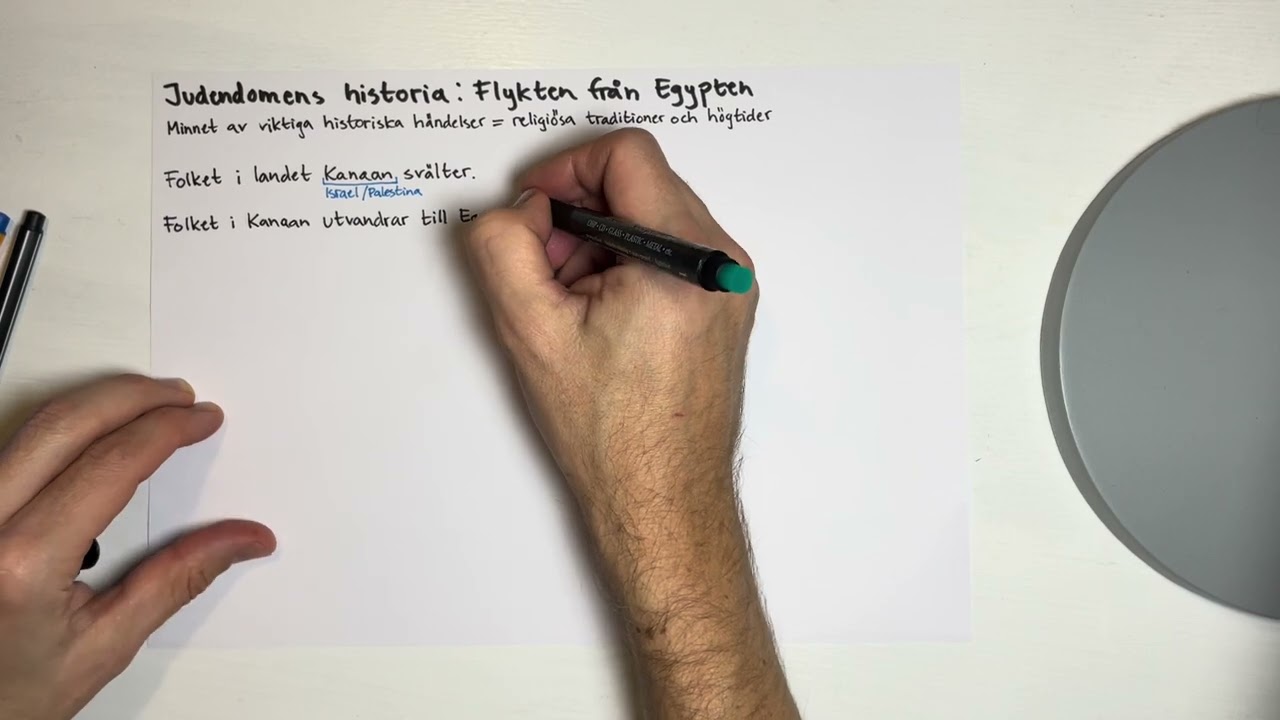 Judendomens historia: Flykten från Egypten
Minnet av viktiga historiska händelser = religiösa traditioner och högtider
Folket i landet Kanaan svälter.
Israel/Palestina
Folket i Kanaan utvandrar till